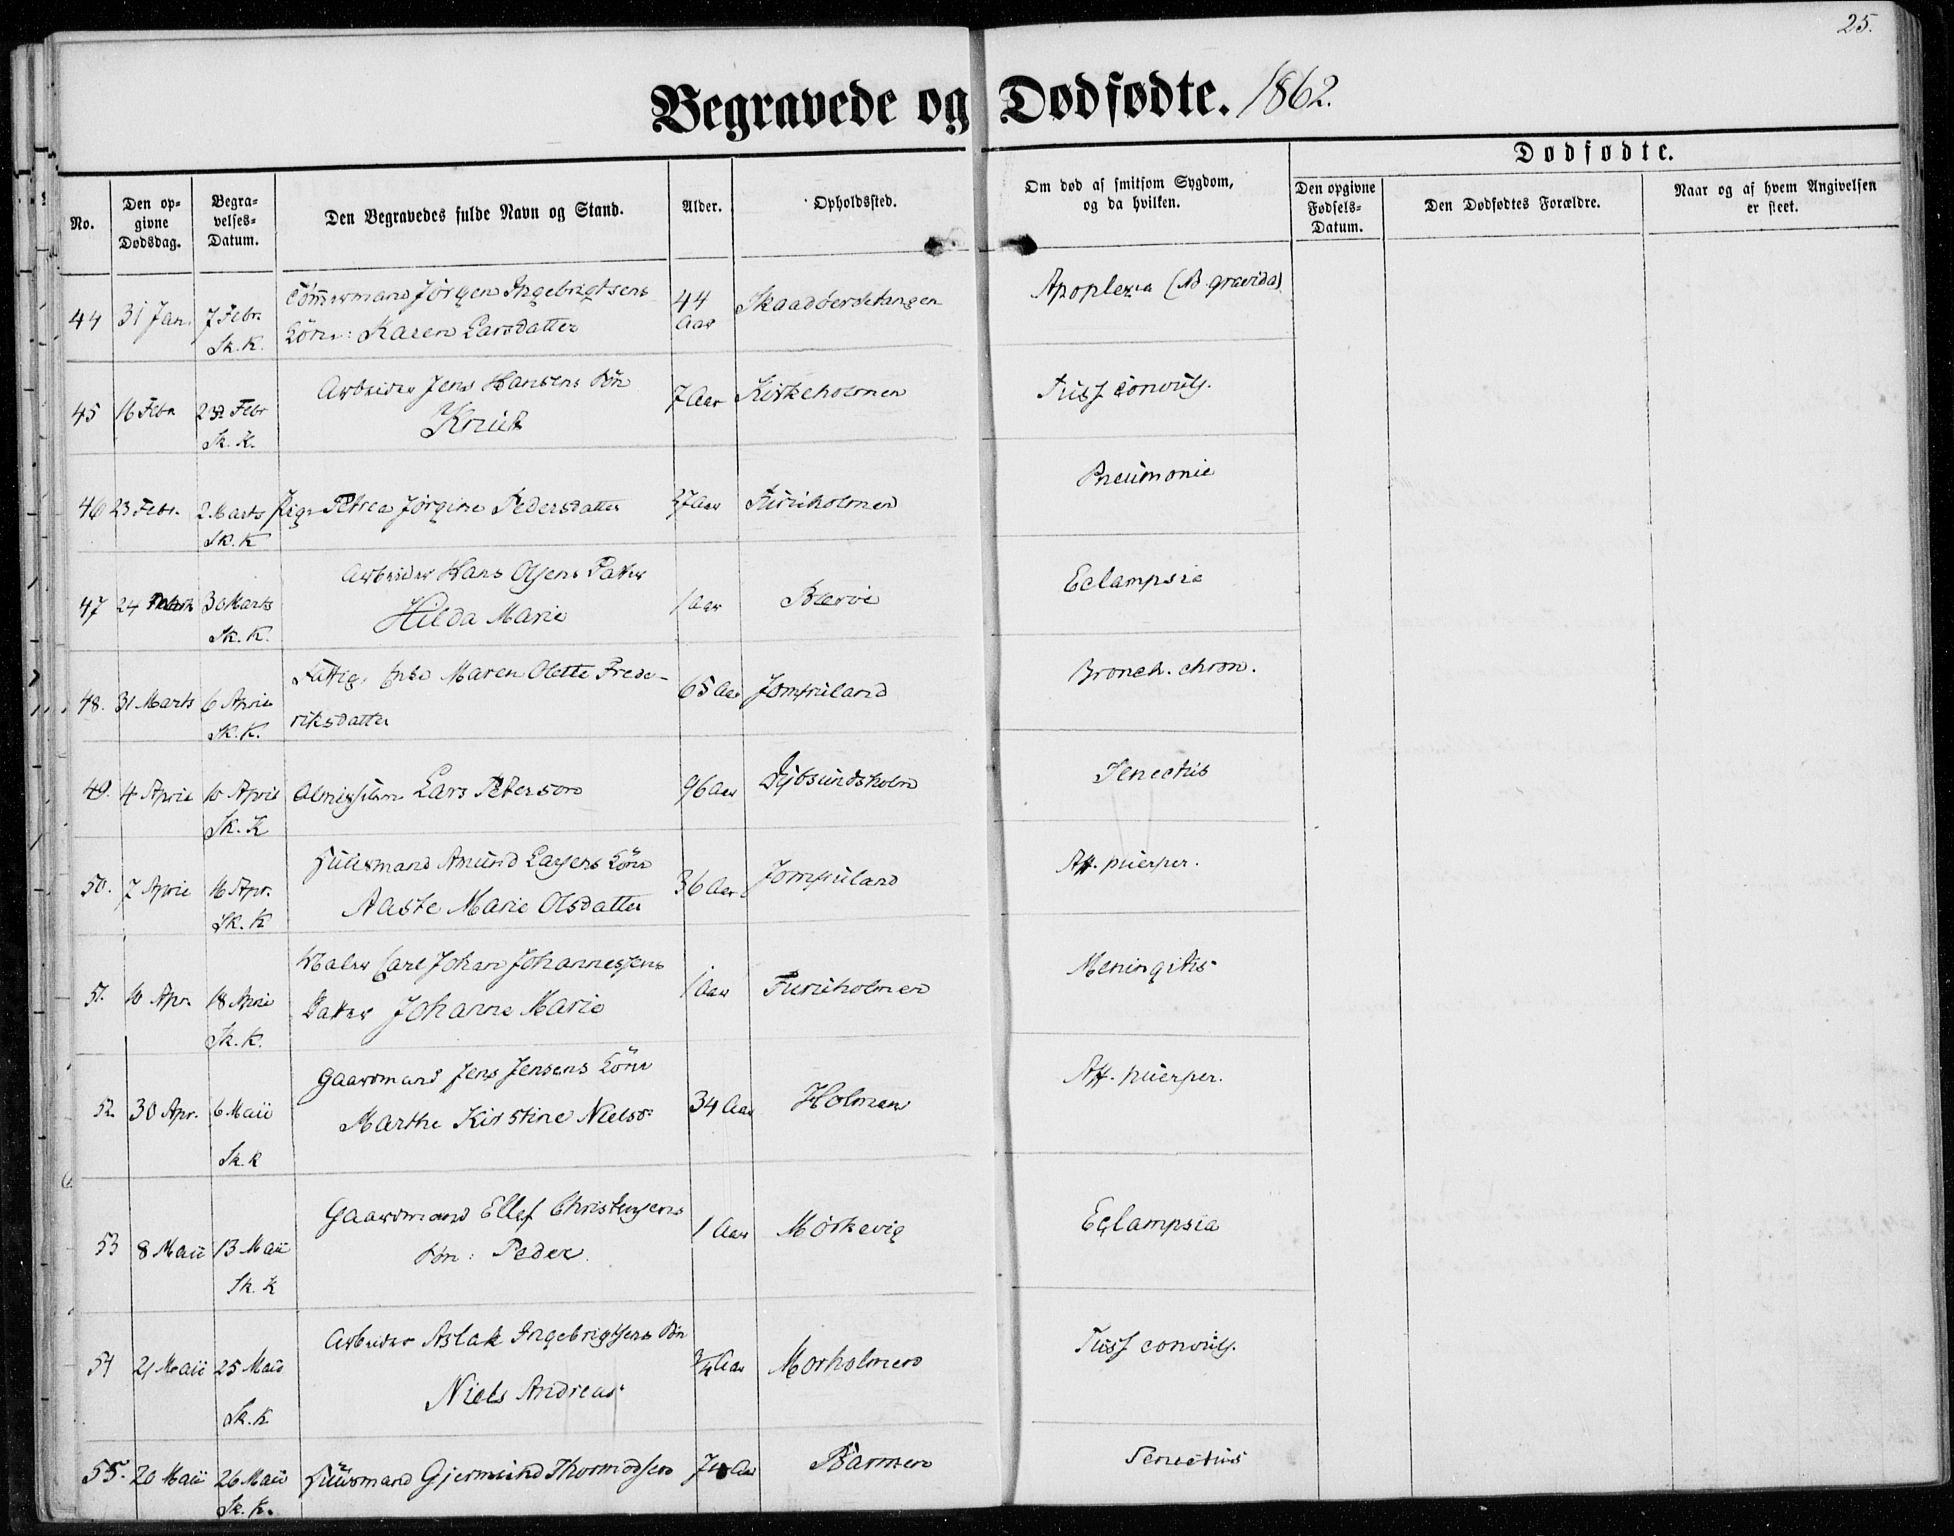 25.
Begravede og Dødfødte. 1862.
No.
Den opgivne Dødsdag.
Begravelses-Datum.
Den Begravedes fulde Navn og Stand.
Alder.
Opholdssted.
Om død af smitsom Sygdom, og da hvilken.
Dødfødte.
Den opgivne Fødsels-Datum.
Den Dødfødtes Forældre.
Naar og af hvem Angivelsen er skeet.
44 31 Jan. 7 Febr. Sk. K. Tömmermand Jörgen Ingebrigtsens 44 Aar Skaadöerdetangen Apoplexia (NB gravida)
Kone: Karen Larsdatter
45 16 Febr 23 Febr Sk. K. Arbeider Jens Hansens Sön 7 Aar Kirkeholmen Tuss convuls.
Knut
46 23 Febr. 2 Marts Sk. K Pige Petrea Jörgine Pedersdatter 37 Aar Furuholmen Pneumonie
47 24 Marts 30 Marts Sk. K. Arbeider Hans Olsens Datter 1 Aar Bærøe Eclampsia
Hilda Marie
48. 31 Marts 6 April Sk. K. Fattig Enke Maren Olette Frede- 65 Aar Jomfruland Bronch. chron.
riksdatter
49. 4 April 10 April Sk. K Lars Peterson 96 Aar Dybsundsholm Senectus
50. 7 April 16 Apr. Sk. K Huusmand Amund Larsens Kone 36 Aar Jomfruland Aff. puerper.
Aaste Marie Olsdatter
51. 10 Apr. 18 April Sk. K. Maler Carl Johan Johannessens 1 Aar Furuholmen Meningitis
Datter Johanne Marie
52. 30 Apr. 6 Maii Sk. K Gaardmand Jens Jensens Kone 34 Aar Holmen Aff. puerper.
Marthe Kirstine Nielsd:
53 8 Maii 13 Maii Sk. K Gaardmand Ellef Christensens 1 Aar Mörkevig Eclampsia
Sön: Peder.
54 21 Maii 25 Maii Sk. K Arbeider Aslak Ingebrigtsens Sön 3/4 Aar Morholmen Tuss convuls.
Niels Andreas
55. 20 Maii 26 Maii Sk. K. Huusmand Gjermund Thormodsen Aar Barmen Senectus